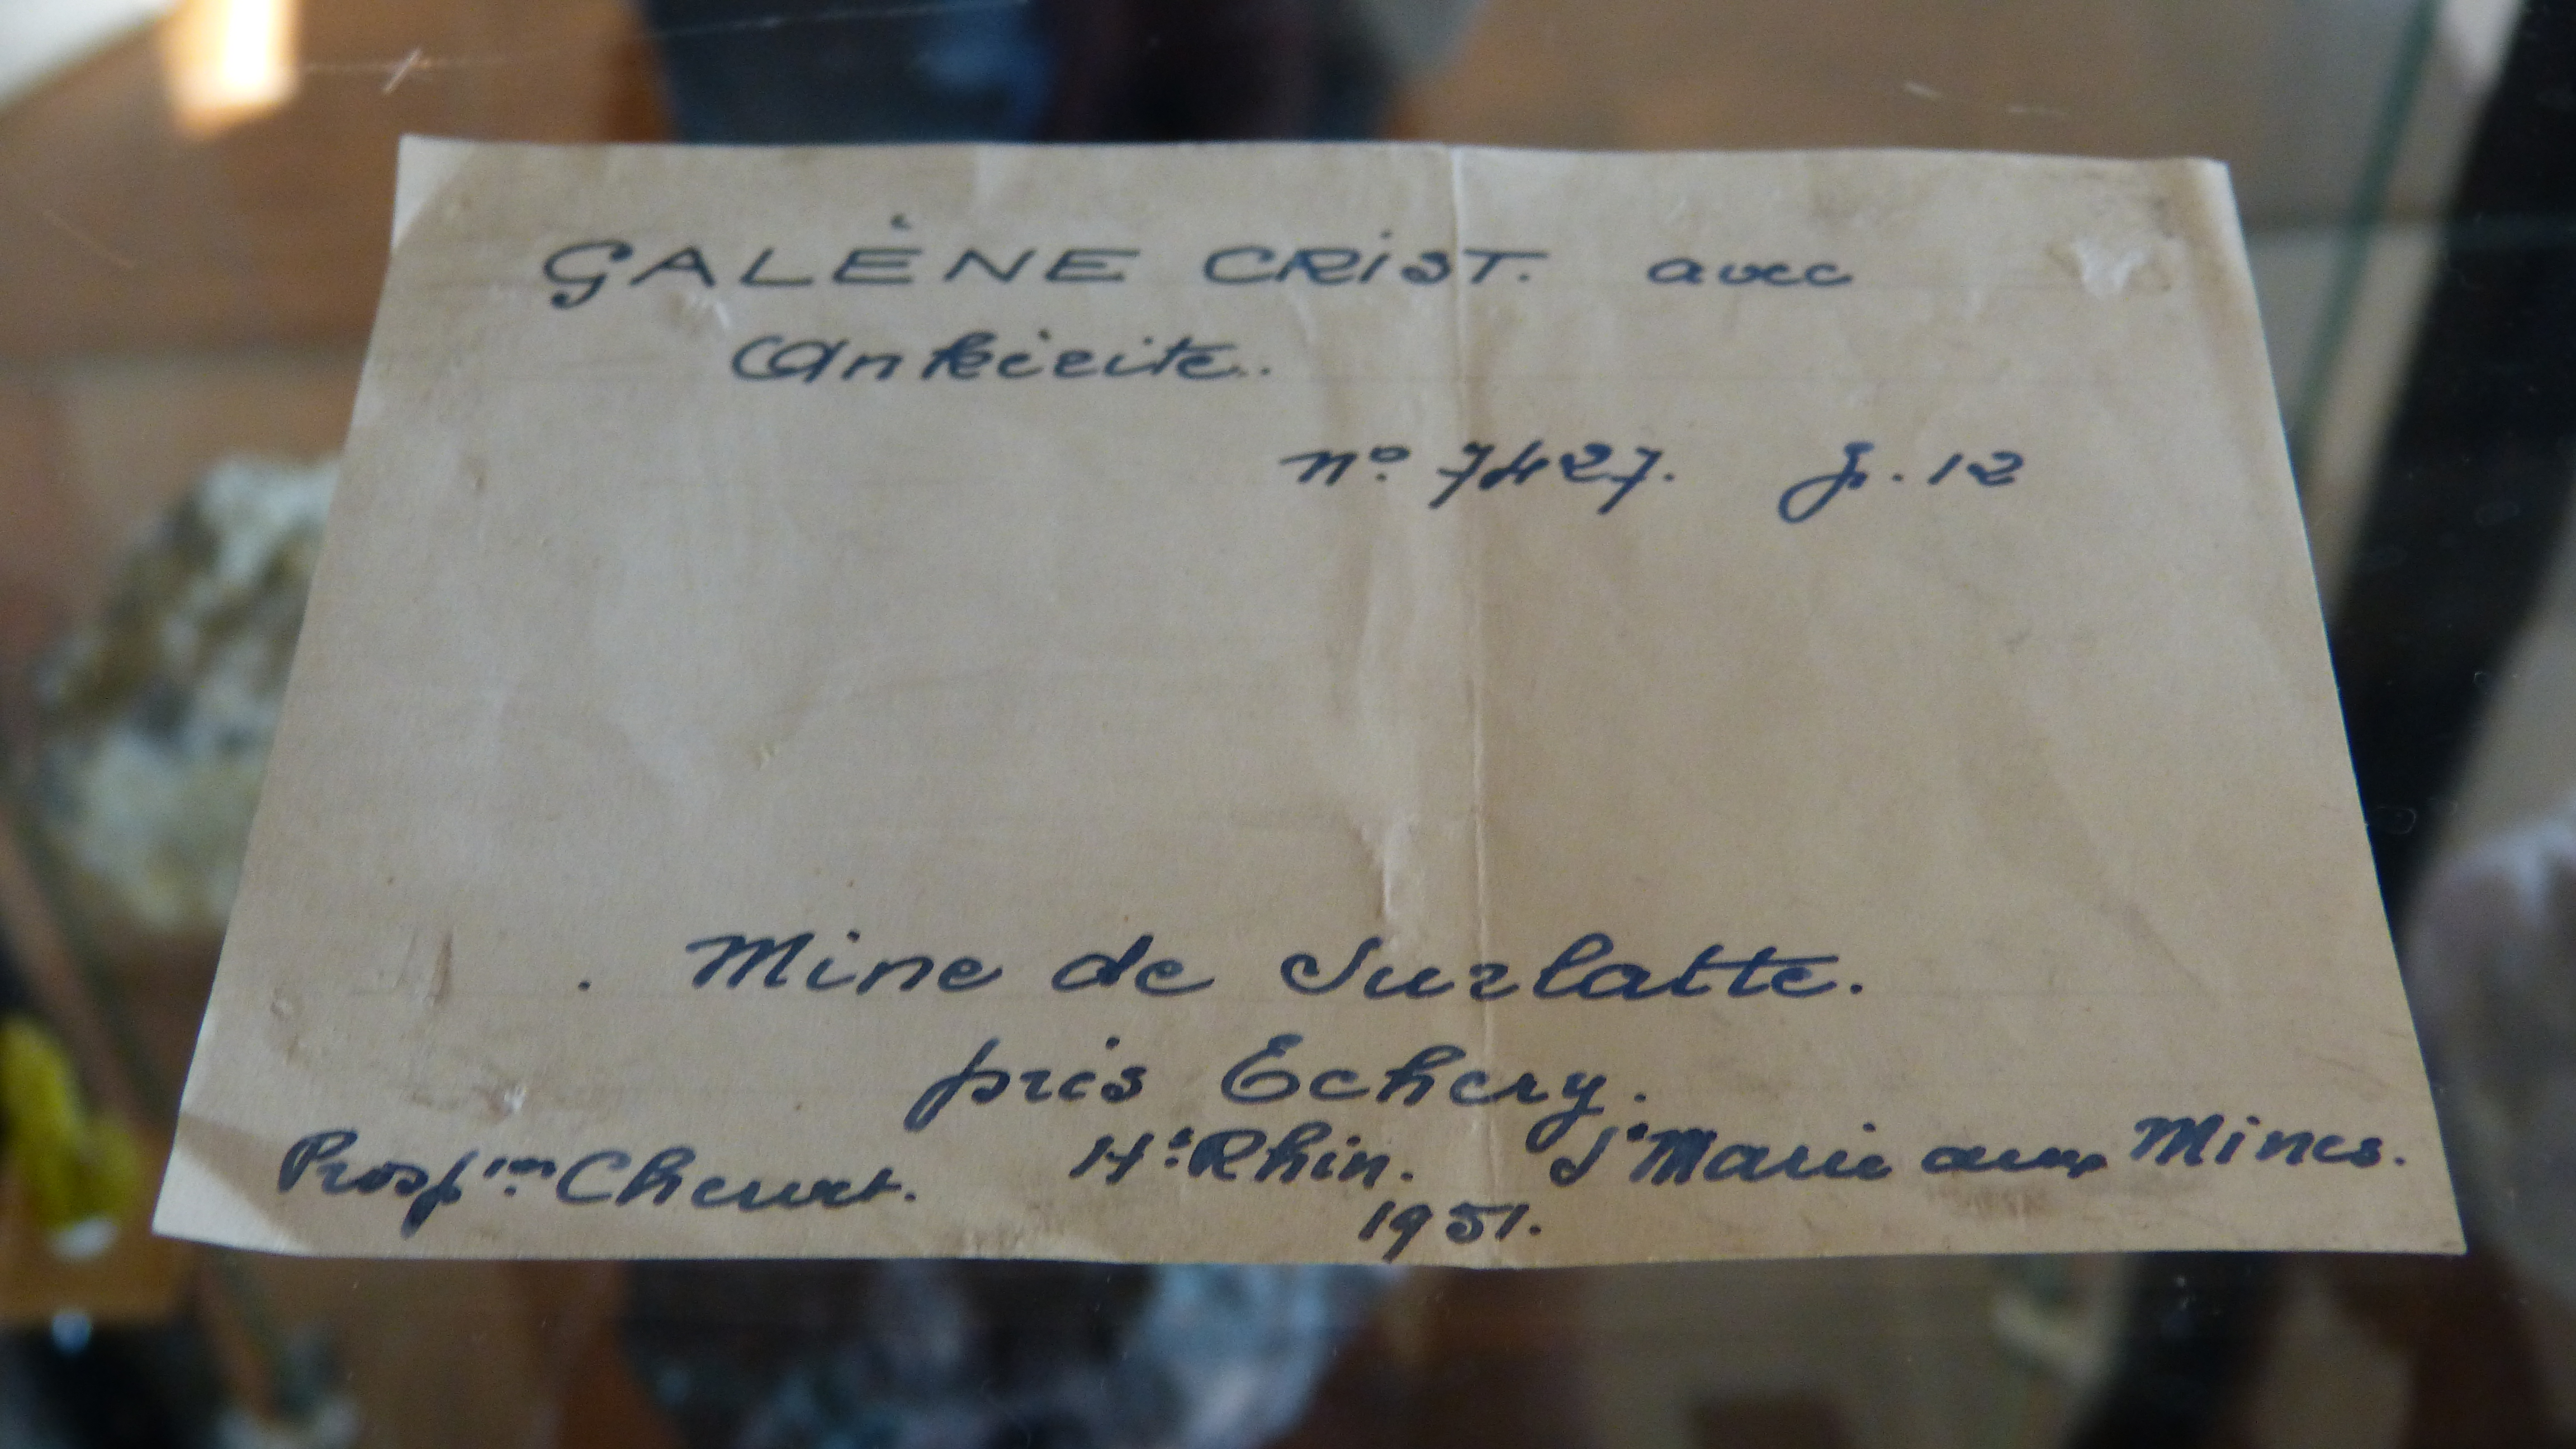 GALÈNE CRIST. avec
Ankérite.
n° 7427. J. 12
Mine de Surlatte.
près Echery.
Prosp.ion H.t Rhin. S.te Marie aux Mines.
1951.